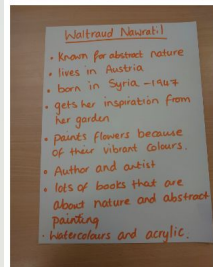 Waltraud Nawratil
• Known for abstract nature
• lives in Austria
• born in Syria - 1947
• gets her inspiration from
her garden
• paints flowers because
of their vibrant colours.
• Author and artist
• lots of books that are
about nature and abstract
painting
• Watercolours and acrylic.